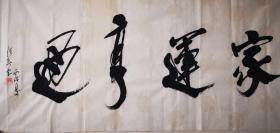 家運亨通